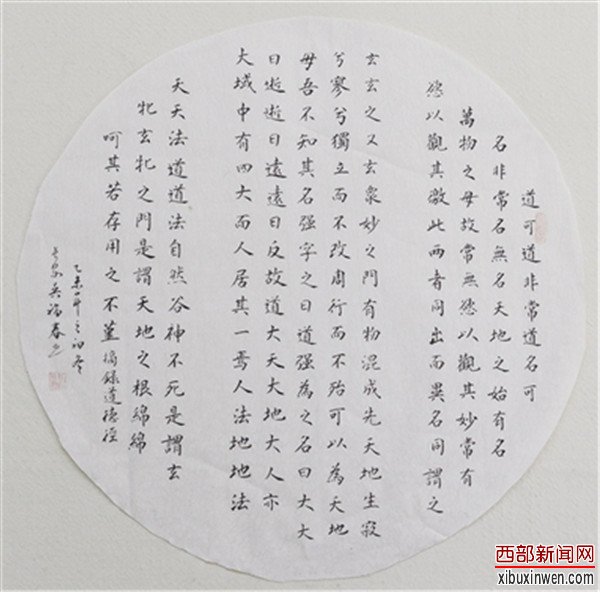 道可道非常道名可
名非常名無名天地之始有名
萬物之母故常無慾以觀其妙常有
慾以觀其徼此兩者同出而異名同謂之
玄玄之又玄衆妙之門有物混成先天地生寂
兮寥兮獨立而不改周行而不殆可以為天地
母吾不知其名强字之曰道强為之名曰大大
曰逝逝曰遠遠曰反故道大天大地大人亦
大域中有四大而人居其一焉人法地地法
天天法道道法自然谷神不死是謂玄
牝玄牝之門是謂天地之根綿綿
呵其若存用之不堇摘録道德經
乙未年之初冬
吳福春
西部新闻网
xibuxinwen.com